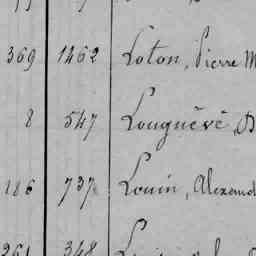 369 1462 Loton, Pierre M
8 547 Louguévé, D
186 737 Louin, Alexand
261 348